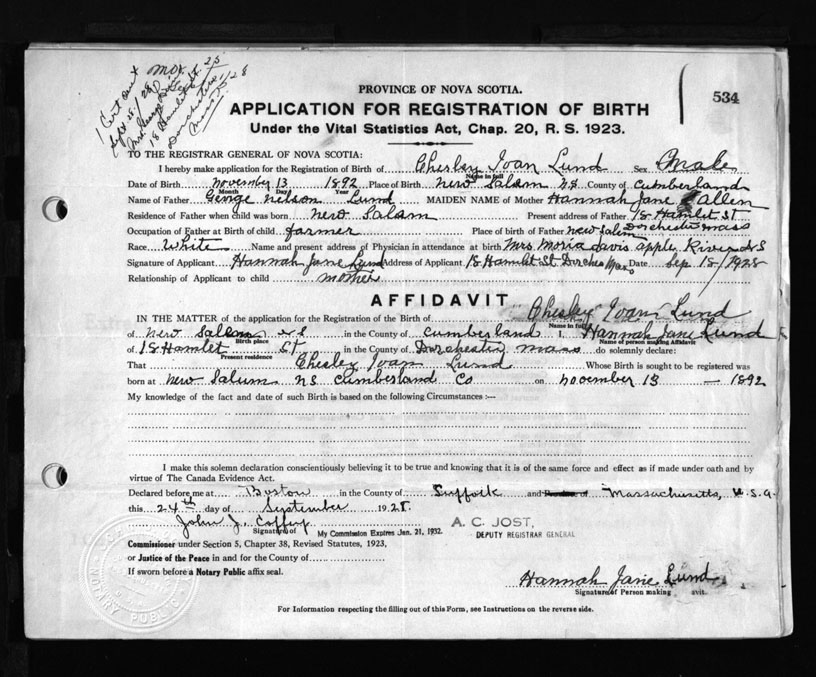 1 Cert out
Sept 25/28
Mrs George
18 Hamlet St
Dorchester
Mass
534
PROVINCE OF NOVA SCOTIA.
APPLICATION FOR REGISTRATION OF BIRTH
Under the Vital Statistics Act, Chap. 20, R. S. 1923.
TO THE REGISTRAR GENERAL OF NOVA SCOTIA:
I hereby make application for the Registration of Birth of Chesley Ioan Lund Sex male
Name in full
Date of Birth november 13 1892 Place of Birth new Salam N.S County of Cumberland
Month Day Year
Name of Father George Nelson Lund MAIDEN NAME of Mother Hannah Jane Allen
Residence of Father when child was born new Salam Present address of Father 18 Hamlet St
Dorchester mass
Occupation of Father at Birth of child farmer Place of birth of Father new Salem
Race White Name and present address of Physician in attendance at birth Mrs. Moria davis apple River N.S
Signature of Applicant Hannah Jane Lund Address of Applicant 18 Hamlet St. Dorches Mass Date Sep 15/1928
Relationship of Applicant to child mother
AFFIDAVIT
IN THE MATTER of the application for the Registration of the Birth of Chesley Ioan Lund
Name in full
of new Sallam N S in the County of Cumberland I, Hannah Jane Lund
Birth place Name of person making Affidavit
of 18 Hamlet St in the County of Dorchester mass do solemnly declare:
Present residence
That Chesley Ioan Lund Whose Birth is sought to be registered was
born at new Salum NS Cumberland Co on november 13 — 1892
My knowledge of the fact and date of such Birth is based on the following Circumstances :—
I make this solemn declaration conscientiously believing it to be true and knowing that it is of the same force and effect as if made under oath and by
virtue of The Canada Evidence Act.
Declared before me at Boston in the County of Suffolk and Massachusetts, U.S.A.
this 24th day of September 1928.
John J. Coffey
Signature of My Commission Expires Jan. 21, 1932.
A. C. JOST,
DEPUTY REGISTRAR GENERAL
Commissioner under Section 5, Chapter 38, Revised Statutes, 1923,
or Justice of the Peace in and for the County of
If sworn before a Notary Public affix seal.
Hannah Jane Lund
Signature of Person making avit.
For Information respecting the filling out of this Form, see Instructions on the reverse side.
NOTARY PUBLIC